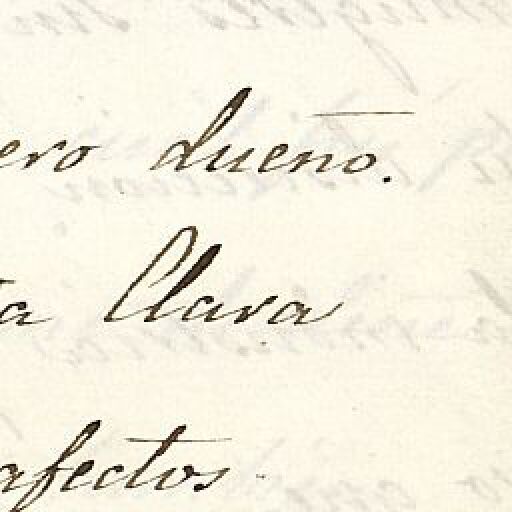 ero dueño.
ta Clara
afectos